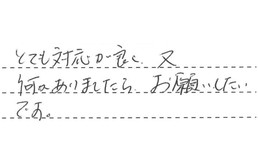 とても対応が良く、又
何かありましたら お願いしたい
です。